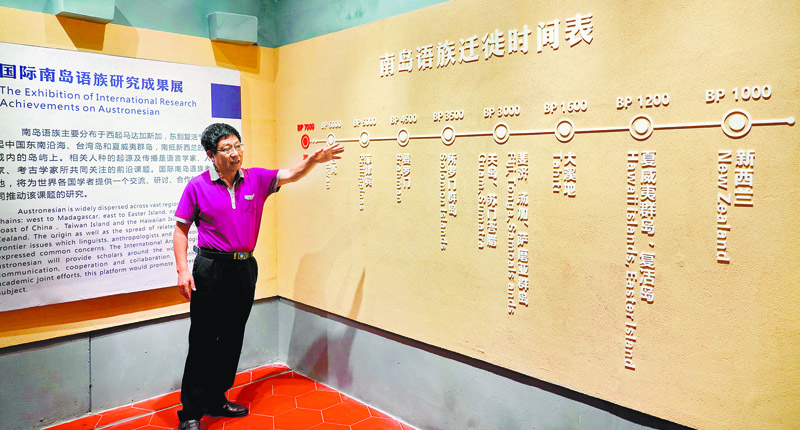 国际南岛语族研究成果展
The Exhibition of International Research
Achievements on Austronesian
南岛语族主要分布于西起马达加斯加，东到复活节
起中国东南沿海、台湾岛和夏威夷群岛，南抵新西兰的
域内的岛屿上。相关人种的起源及传播是语言学家、人
家、考古学家所共同关注的前沿课题。国际南岛语族考
地，将为世界各国学者提供一个交流、研讨、合作
同推动该课题的研究。
Austronesian is widely dispersed across vast regi
hains: west to Madagascar, east to Easter Island, n
oast of China , Taiwan Island and the Hawaiian Isl
Zealand. The origin as well as the spread of relate
frontier issues which linguists, anthropologists and
expressed common concerns. The International Ar
Austronesian will provide scholars around the wo
communication, cooperation and collaboration.
academic joint efforts, this platform would promote
subject.
南岛语族迁徙时间表
BP 7000
BP 6000
BP 5000
菲律宾
BP 4500
BP 3500
所罗门群岛
Solomon Islands
BP 3000
斐济、汤加、萨摩亚群岛
Fiji, Tonga, Samoa Islands
BP 1600
大溪地
Tahiti
BP 1200
夏威夷群岛、复活岛
Hawaii Islands, Easter Island
BP 1000
新西兰
New Zealand